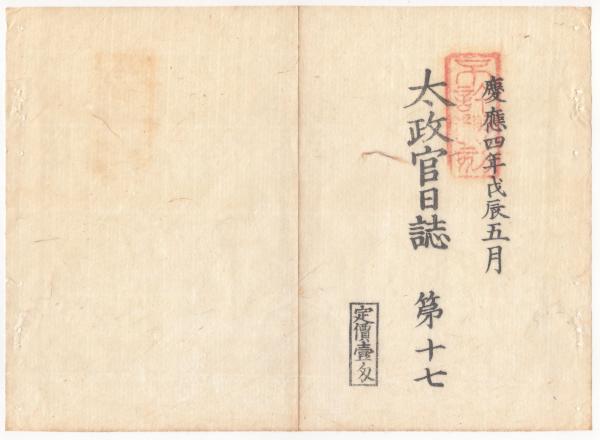 慶應四年戊辰五月
太政官日誌 第十七
定價壹匁